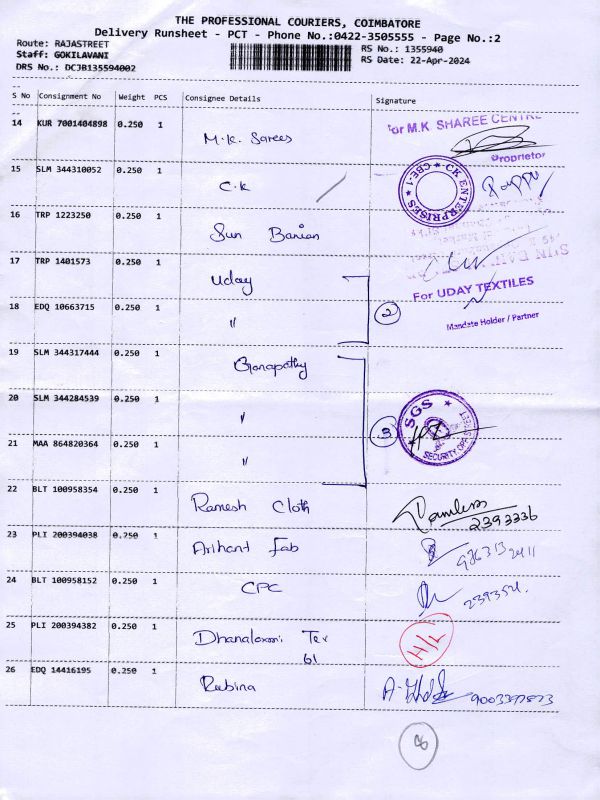 THE PROFESSIONAL COURIERS, COIMBATORE
Delivery Runsheet - PCT - Phone No.:0422-3505555 - Page No.:2
Route: RAJASTREET
RS No.: 1355940
Staff: GOKILAVANI
RS Date: 22-Apr-2024
DRS No.: DCJB135594002
S No Consignment No Weight PCS Consignee Details Signature
14 KUR 7001404898 0.250 1 M.K. Sarees
for M.K SHAREE CENTRE
Proprietor
15 SLM 344310052 0.250 1 C.K
CK ENTERPRISES ★ CBE-1 ★
16 TRP 1223250 0.250 1 Sun Banian
17 TRP 1401573 0.250 1 Uday
For UDAY TEXTILES
18 EDQ 10663715 0.250 1 "
2
Mandate Holder / Partner
19 SLM 344317444 0.250 1 Ganapathy
20 SLM 344284539 0.250 1 "
3
★ SGS ★
SECURITY OFF
21 MAA 864820364 0.250 1 "
22 BLT 100958354 0.250 1 Ramesh Cloth
2393336
23 PLI 200394038 0.250 1 Arihant Fab
24 BLT 100958152 0.250 1 CPC
25 PLI 200394382 0.250 1 Dhanalaxmi Tex
61
H/L
26 EDQ 14416195 0.250 1 Rubina